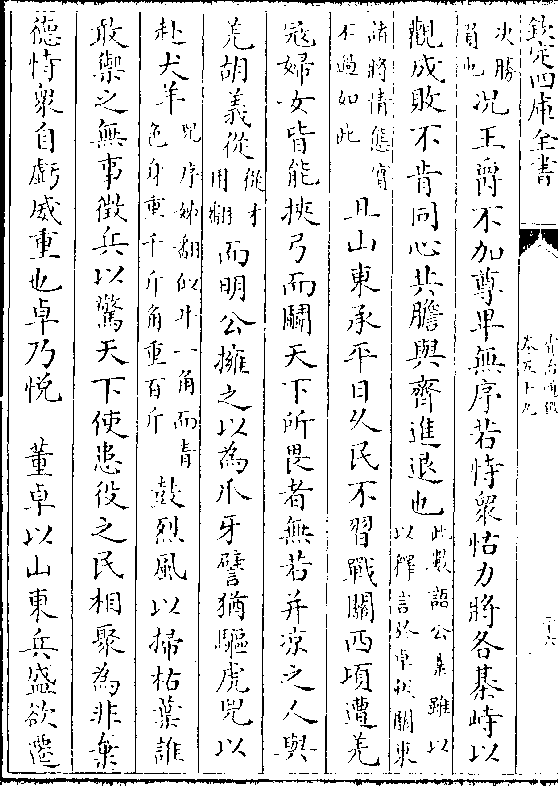 欽定四庫全書
決勝
負也
况王爵不加尊卑無序若恃衆怙力將各棊峙以
觀成敗不肯同心共膽與齊進退也
此數語公業雖以
以釋言於卓然關東
諸將情態實
不過如此
且山東承平日久民不習戰關西頃遭羌
寇婦女皆能挾弓而鬭天下所畏者無若并凉之人與
羌胡義從
從才
用翻
而明公擁之以為爪牙譬猶驅虎兕以
赴犬羊
兕序姊翻似牛一角而青
色身重千斤角重百斤
鼓烈風以掃枯葉誰
敢禦之無事徵兵以驚天下使患役之民相聚為非棄
德恃衆自虧威重也卓乃悦　董卓以山東兵盛欲遷
資治通鑑
卷五十九
二十六